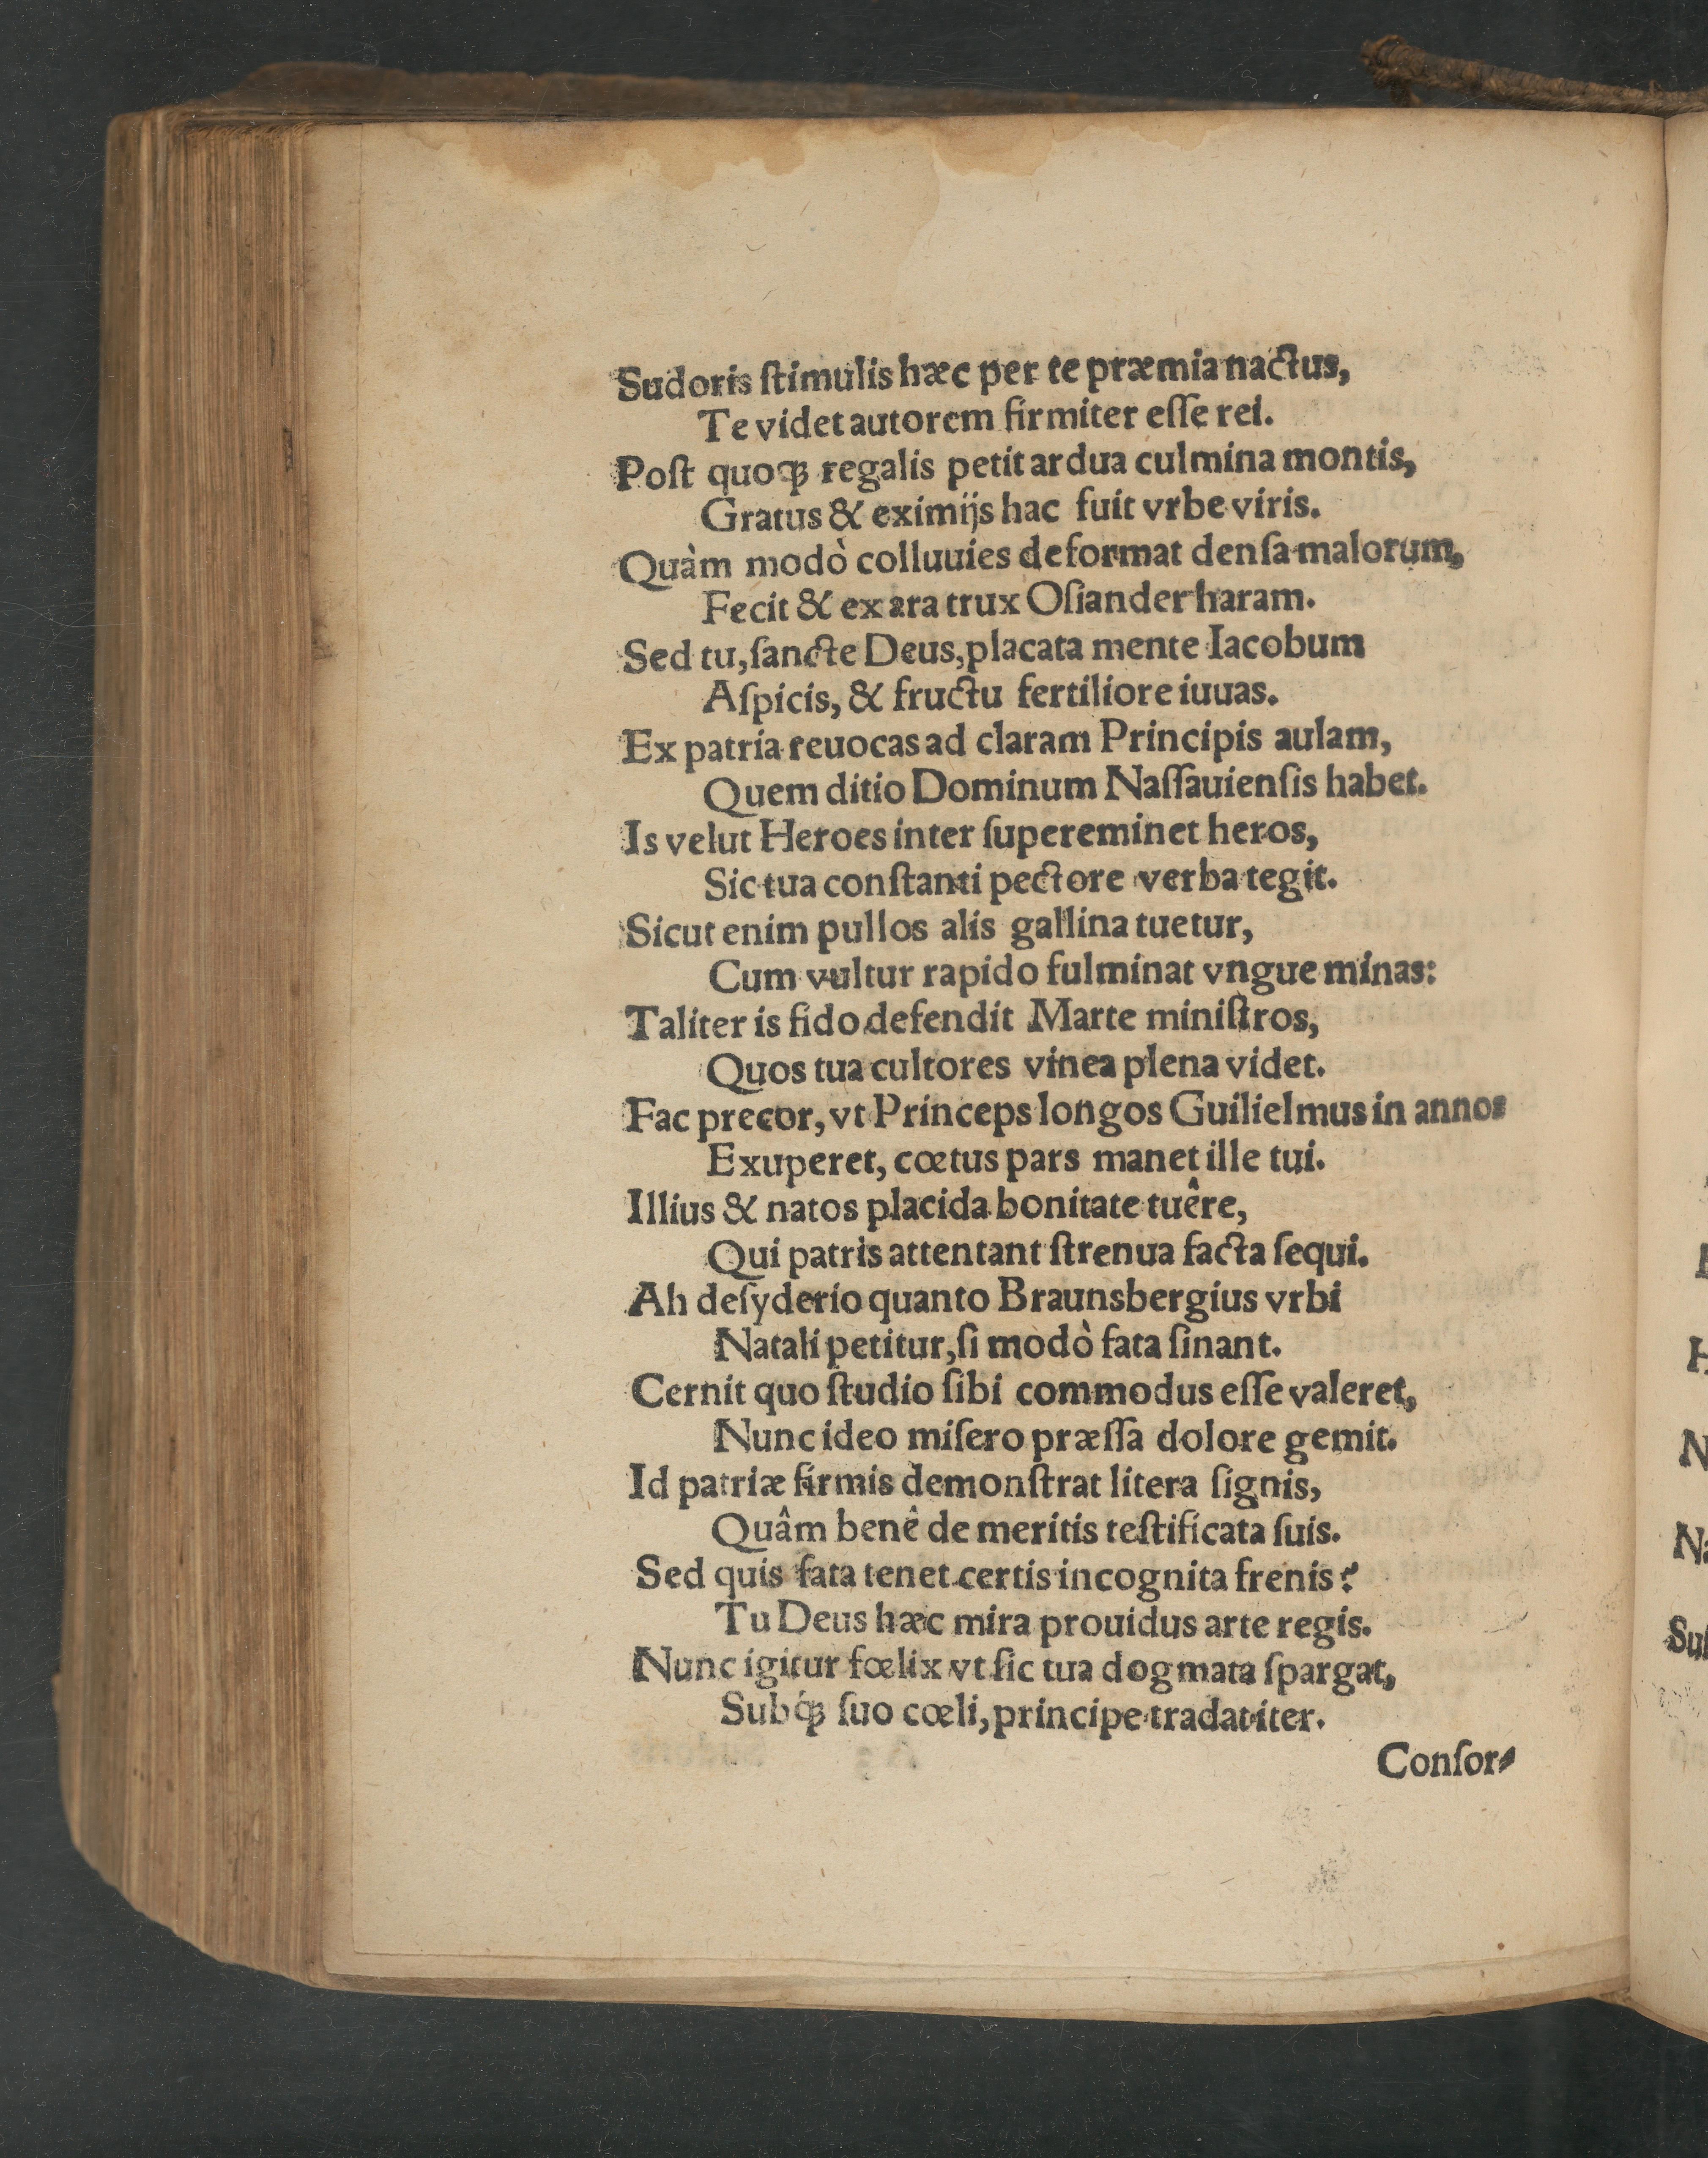 Sudoris ſtimulis hæc per te præmia nactus,
Te videt autorem firmiter eſſe rei.
Poſt quoqꝫ regalis petit ardua culmina montis,
Gratus & eximijs hac fuit vrbe viris.
Quàm modò colluuies deformat denſa malorum,
Fecit & ex ara trux Oſiander haram.
Sed tu, ſancte Deus, placata mente Iacobum
Aſpicis, & fructu fertiliore iuuas.
Ex patria reuocas ad claram Principis aulam,
Quem ditio Dominum Naſſauienſis habet.
Is velut Heroes inter ſupereminet heros,
Sic tua conſtanti pectore verba tegit.
Sicut enim pullos alis gallina tuetur,
Cum vultur rapido fulminat vngue minas:
Taliter is fido defendit Marte miniſtros,
Quos tua cultores vinea plena videt.
Fac precor, vt Princeps longos Guilielmus in annos
Exuperet, cœtus pars manet ille tui.
Illius & natos placida bonitate tuêre,
Qui patris attentant ſtrenua facta ſequi.
Ah deſyderio quanto Braunsbergius vrbi
Natali petitur, ſi modò fata ſinant.
Cernit quo ſtudio ſibi commodus eſſe valeret,
Nunc ideo miſero præſſa dolore gemit.
Id patriæ firmis demonſtrat litera ſignis,
Quâm benê de meritis teſtificata ſuis.
Sed quis fata tenet certis incognita frenis?
Tu Deus hæc mira prouidus arte regis.
Nunc igitur fœlix vt ſic tua dogmata ſpargat,
Subq́ꝫ ſuo cœli, principe tradat iter.
Conſor⸗